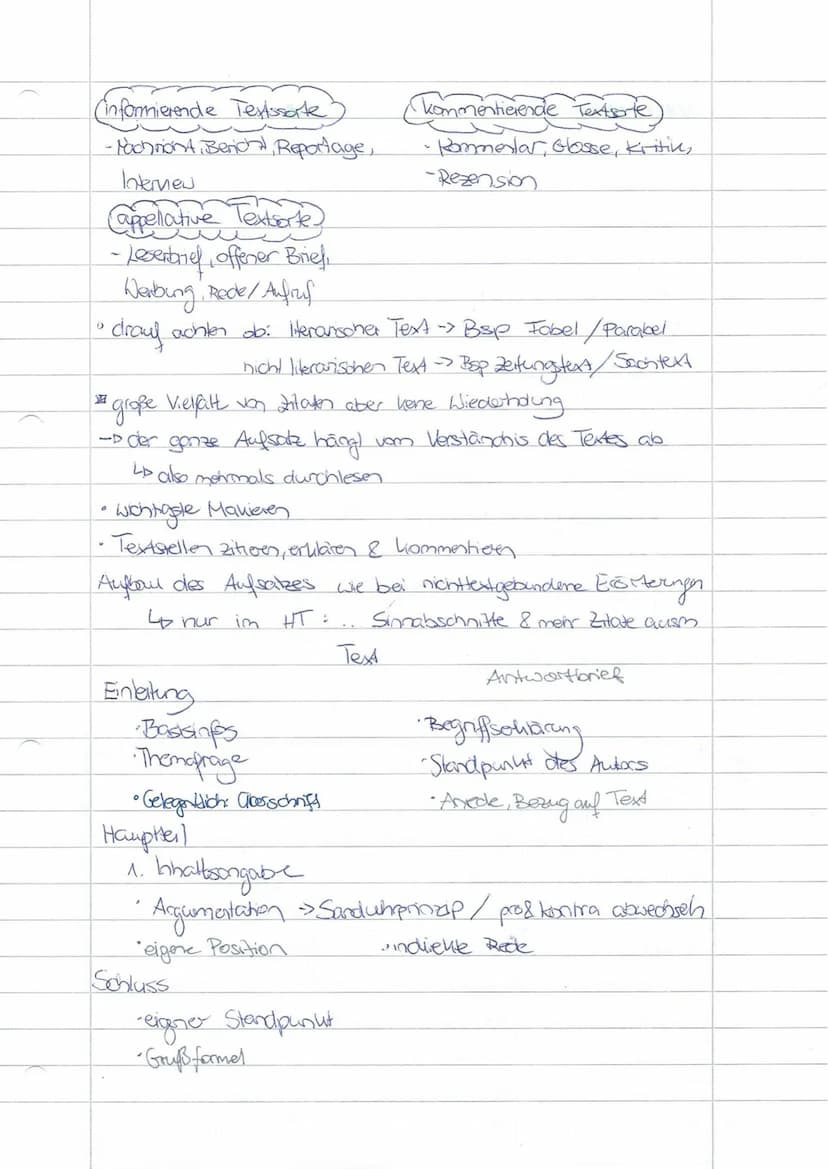 informierende Textssorte
kommentierende Textsorte
- Nachricht, Bericht, Reportage,
Interview
- Kommentar, Glosse, Kritik,
- Rezension
appellative Textsorte
- Leserbrief, offener Brief,
Werbung, Rede/Aufruf
• drauf achten ob: literarischer Text -> Bsp Fabel / Parabel
nicht literarischen Text -> Bsp Zeitungstext / Sachtext
große Vielfalt von Zitaten aber keine Wiederholung
-> der ganze Aufsatz hängt vom Verständnis des Textes ab
↳ also mehrmals durchlesen
• wichtigste Makieren
• Textstellen zitieren, erklären & kommentieren
Aufbau des Aufsatzes wie bei nichttextgebundene Erörterungen
↳ nur im HT: .. Sinnabschnitte & mehr Zitate ausm
Text
Antwortbrief
Einleitung
• Basisinfos
• Themafrage
• Gelegentlich:
• Begriffserklärung
• Standpunkt des Autors
• Anrede, Bezug auf Text
Hauptteil
1. Inhaltsangabe
• Argumentation -> Sanduhrprinzip / pro & kontra abwechseln
• eigene Position
• indirekte Rede
Schluss
- eigner Standpunkt
• Grußformel